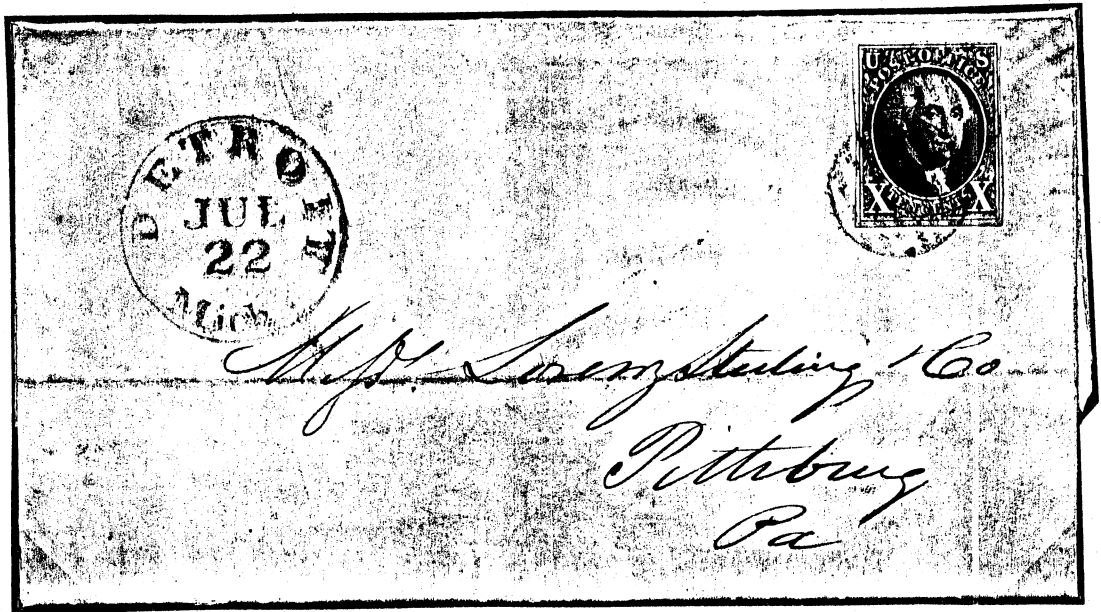 DETROIT
JUL
22
Mich
U S
POST OFFICE
X X
Messrs Lorenz Sterling & Co
Pittsburg
Pa